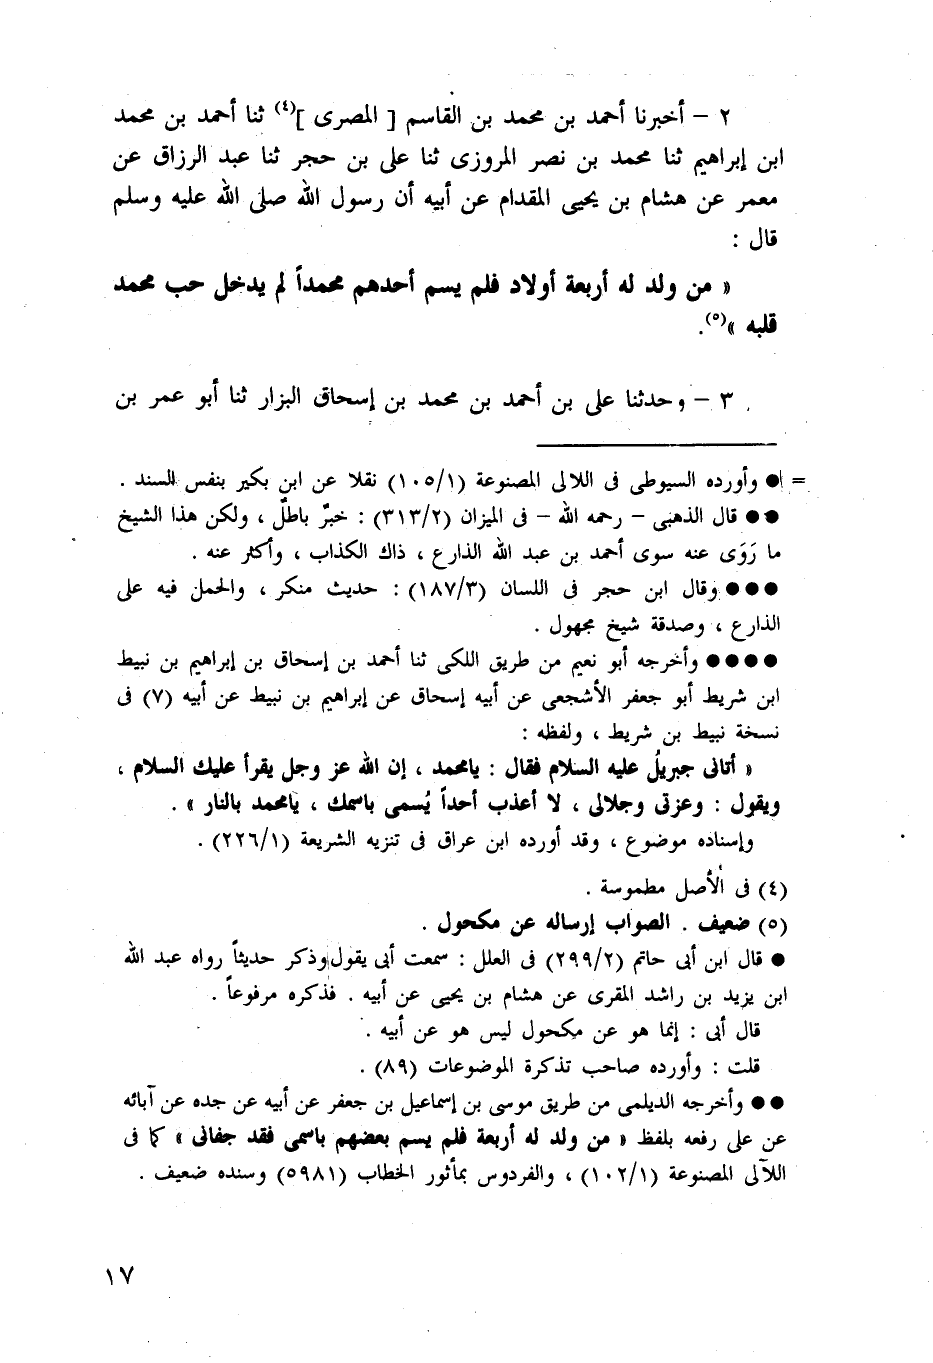 ٢ – أخبرنا أحمد بن محمد بن القاسم [ المصرى ](٤) ثنا أحمد بن محمد
ابن إبراهيم ثنا محمد بن نصر المروزى ثنا على بن حجر ثنا عبد الرزاق عن
معمر عن هشام بن يحيى المقدام عن أبيه أن رسول الله صلى الله عليه وسلم
قال :
« من ولد له أربعة أولاد فلم يسم أحدهم محمداً لم يدخل حب محمد
قلبه »(٥).
٣ – وحدثنا على بن أحمد بن محمد بن إسحاق البزار ثنا أبو عمر بن
= ● وأورده السيوطى فى اللالى المصنوعة (١٠٥/١) نقلا عن ابن بكير بنفس السند .
●● قال الذهبى – رحمه الله – فى الميزان (٣١٣/٢) : خبرٌ باطلٌ ، ولكن هذا الشيخ
ما رَوَى عنه سوى أحمد بن عبد الله الذارع ، ذاك الكذاب ، وأكثر عنه .
●●● وقال ابن حجر فى اللسان (١٨٧/٣) : حديث منكر ، والحمل فيه على
الذارع ، وصدقة شيخ مجهول .
●●●● وأخرجه أبو نعيم من طريق اللكى ثنا أحمد بن إسحاق بن إبراهيم بن نبيط
ابن شريط أبو جعفر الأشجعى عن أبيه إسحاق عن إبراهيم بن نبيط عن أبيه (٧) فى
نسخة نبيط بن شريط ، ولفظه :
« أتانى جبريلُ عليه السلام فقال : يامحمد ، إن الله عز وجل يقرأ عليك السلام ،
ويقول : وعزتى وجلالى ، لا أعذب أحداً يُسمى باسمك ، يامحمد بالنار » .
وإسناده موضوع ، وقد أورده ابن عراق فى تنزيه الشريعة (٢٢٦/١) .
(٤) فى الأصل مطموسة .
(٥) ضعيف . الصواب إرساله عن مكحول .
● قال ابن أبى حاتم (٢٩٩/٢) فى العلل : سمعت أبى يقول وذكر حديثاً رواه عبد الله
ابن يزيد بن راشد المقرى عن هشام بن يحيى عن أبيه . فذكره مرفوعاً .
قال أبى : إنما هو عن مكحول ليس هو عن أبيه .
قلت : وأورده صاحب تذكرة الموضوعات (٨٩) .
●● وأخرجه الديلمى من طريق موسى بن إسماعيل بن جعفر عن أبيه عن جده عن آبائه
عن على رفعه بلفظ « من ولد له أربعة فلم يسم بعضهم باسمى فقد جفانى » كما فى
اللآلى المصنوعة (١٠٢/١) ، والفردوس بمأثور الخطاب (٥٩٨١) وسنده ضعيف .
١٧